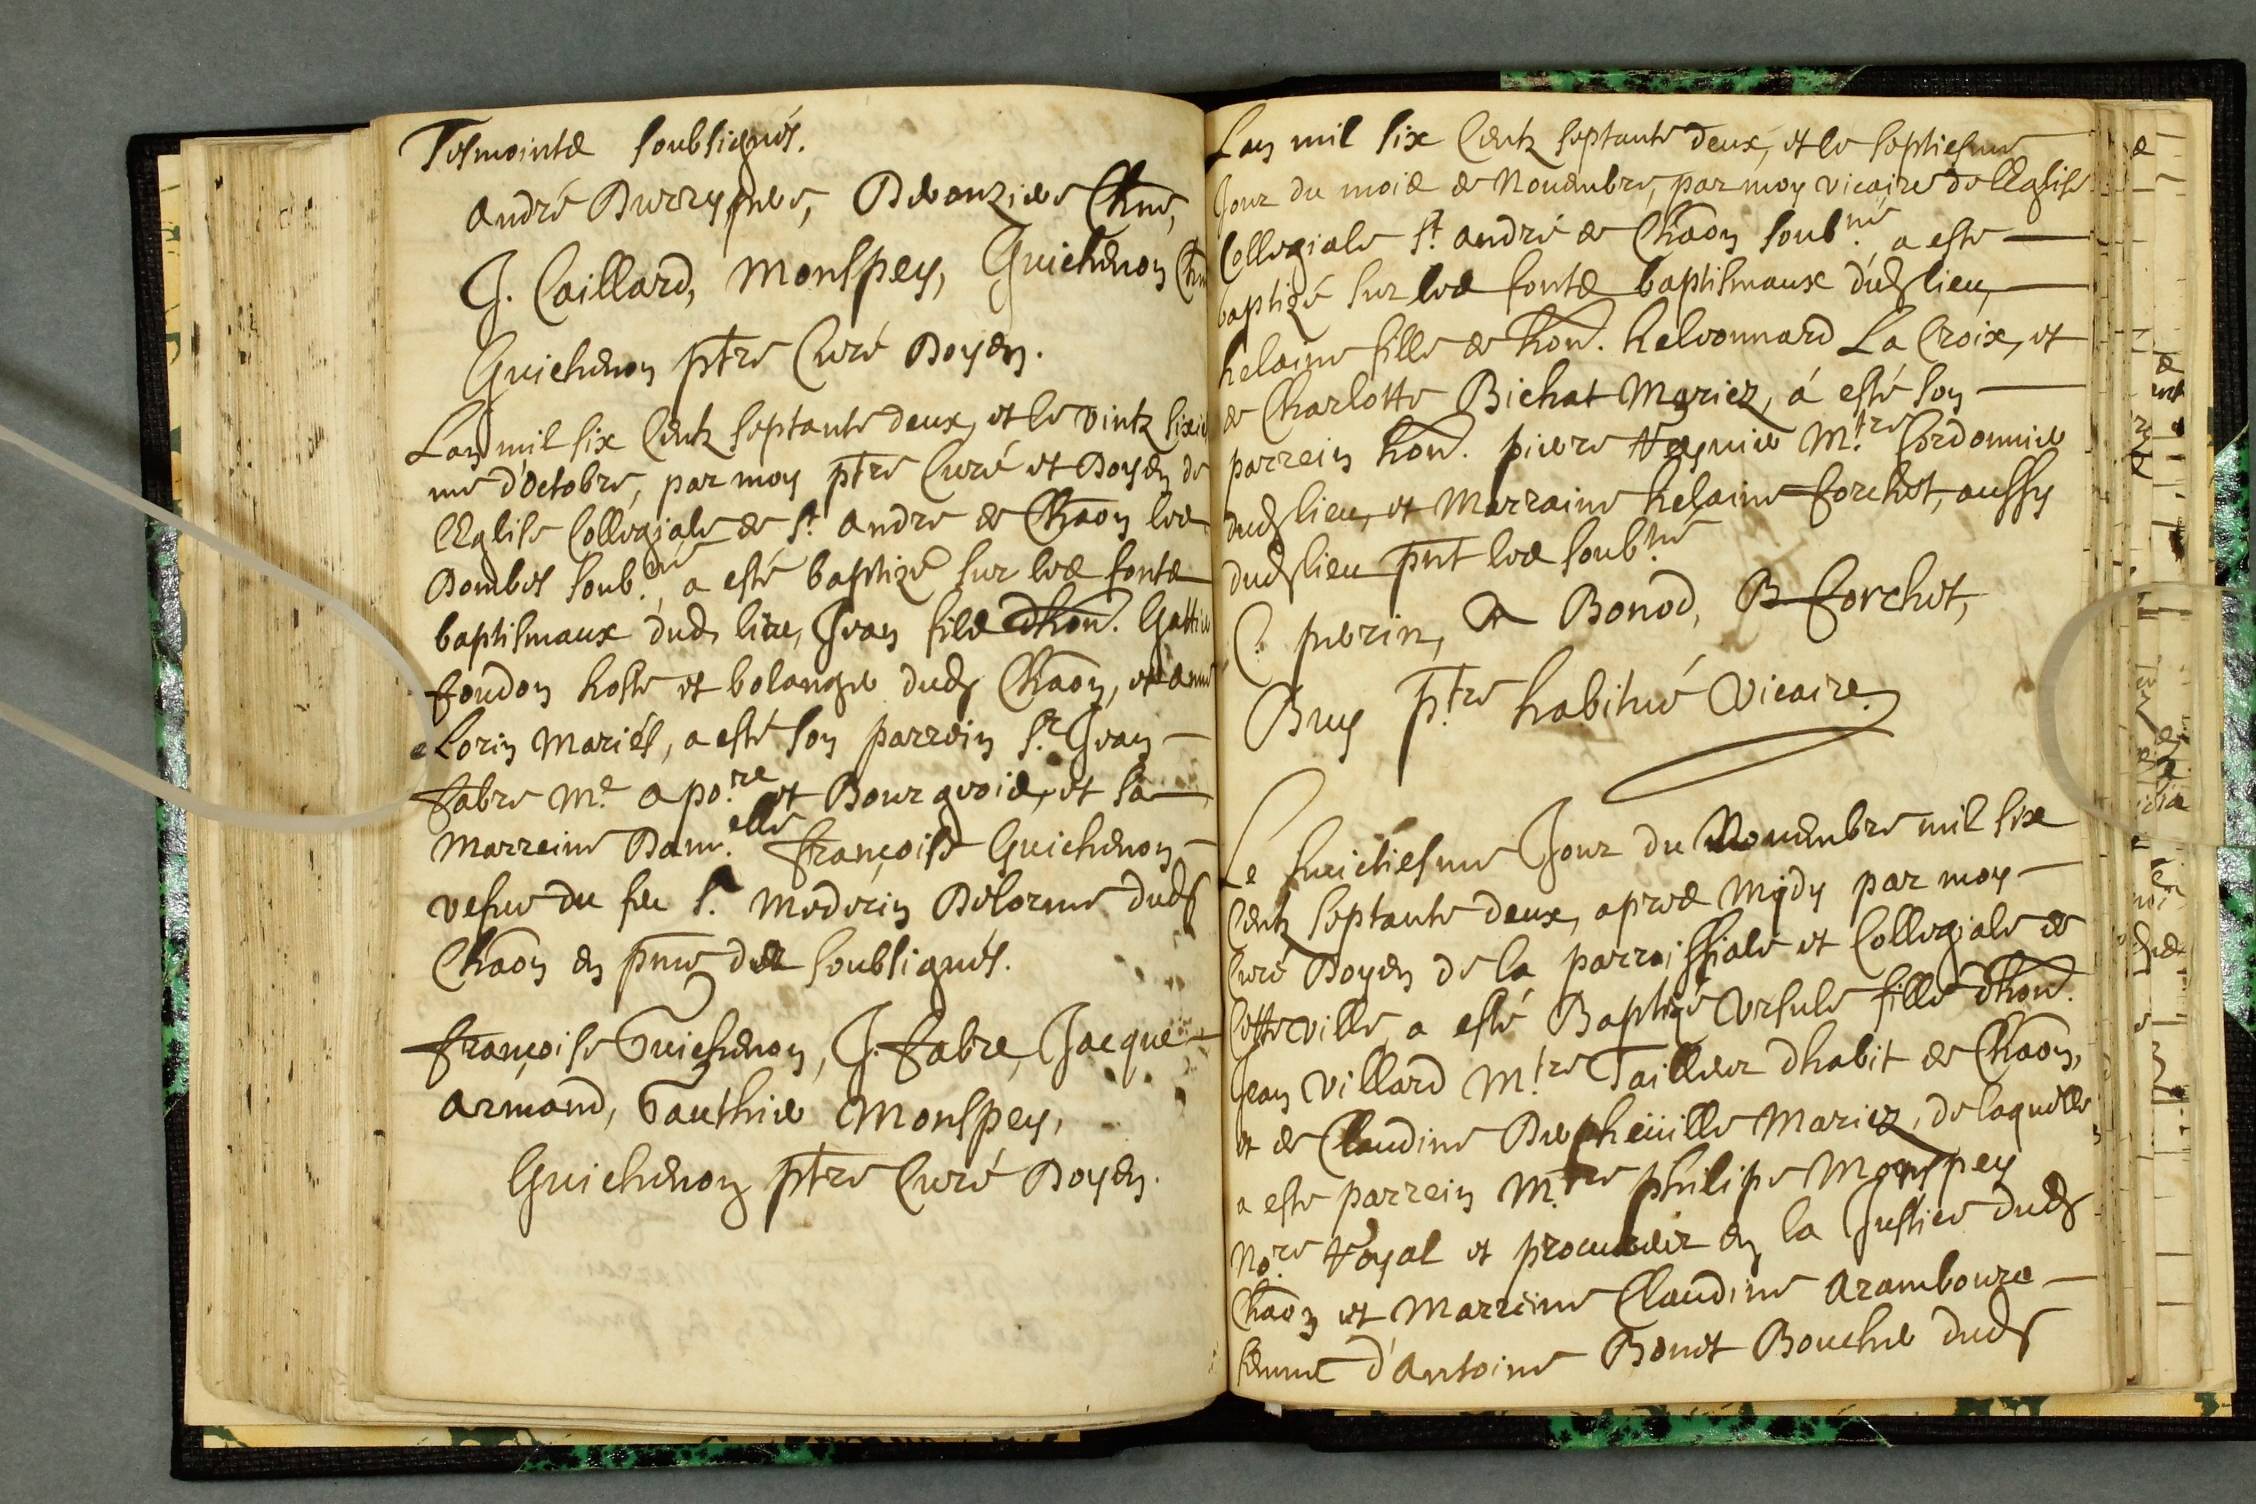 Tesmointz soubsignés.
André Durry
J. Caillard, Monspey, Guichenon Chne
Guichenon ptre Curé Doyen.
Lan mil six Centz septante deux, et le vintz sixie
me d'octobre, par moy ptre Curé et Doyen de
lEglise Collegiale de St. André de Chaon lez
Dombes soub.né, a esté baptizé sur les fontz
baptismaux dud. lieu, Jean filz dhon. Gattie
foudon hoste et bolanger dud. Chaon, et anne
Lorin Mariés, a esté son parrein Sr. Jean
Fabre Me. apo.re et Bourgeois, et sa
Marreine Dam.elle Françoise Guichenon
vefve du feu Sr. Médecin Delorme dud.
Chaon en pnce des soubsignés.
Françoise Guichenon, J. Fabre, Jacque
Armand, Gauthier Monspey,
Guichenon ptre Curé Doyen.
Lan mil six Centz septante deux, et le septiesme
Jour du mois de Novembre, par moy vicaire de lEglise
Collegiale St. André de Chaon soub.né a esté
baptizé sur les fontz baptismaux dud. lieu,
helaine fille de hon. heleonnard La Croix, et
de Charlotte Bichat Mariez, á esté son
parrein hon. pierre M.tre Cordonnier
dud. lieu, et Marraine helaine forchet, aussy
dud. lieu pnt les soub.né
C. perrin, Bonod, B forchet,
Bruy ptre habitué Vicaire.
Le huictiesme Jour du Novembre mil six
Centz septante deux, apres Mydy par moy
Curé Doyen de la parroissiale et Collegiale de
Cette ville, a esté Baptizé Ursule fille dhon.
Jean Villard M.tre Tailleur dhabit de Chaon,
et de Claudine Mariez, de laquelle
a esté parrein M.tre philipe Monspey
No.re Royal et procureur en la Justice dud.
Chaon et Marreine Claudine Arambourg
femme d'Antoine Bonet Boucher dud.